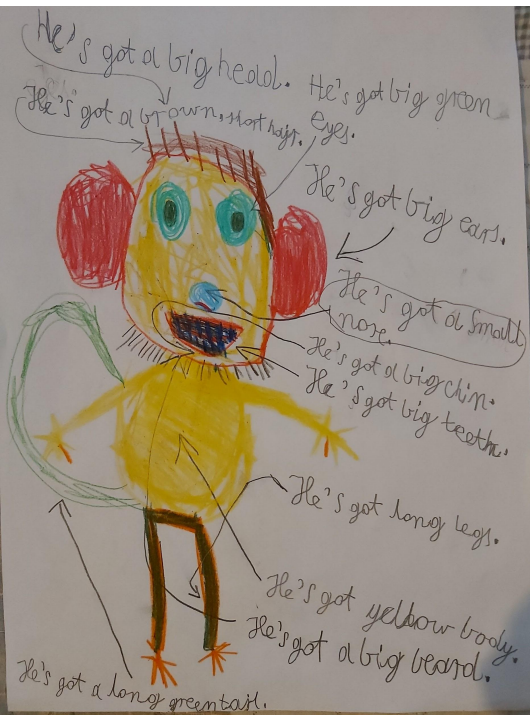 He's got a big head.
He's got big green
eyes.
He's got a brown, short hair.
He's got big ears.
He's got a small
nose.
He's got a big chin.
He's got big teeth.
He's got long legs.
He's got yellow body.
He's got a big beard.
He's got a long green tail.